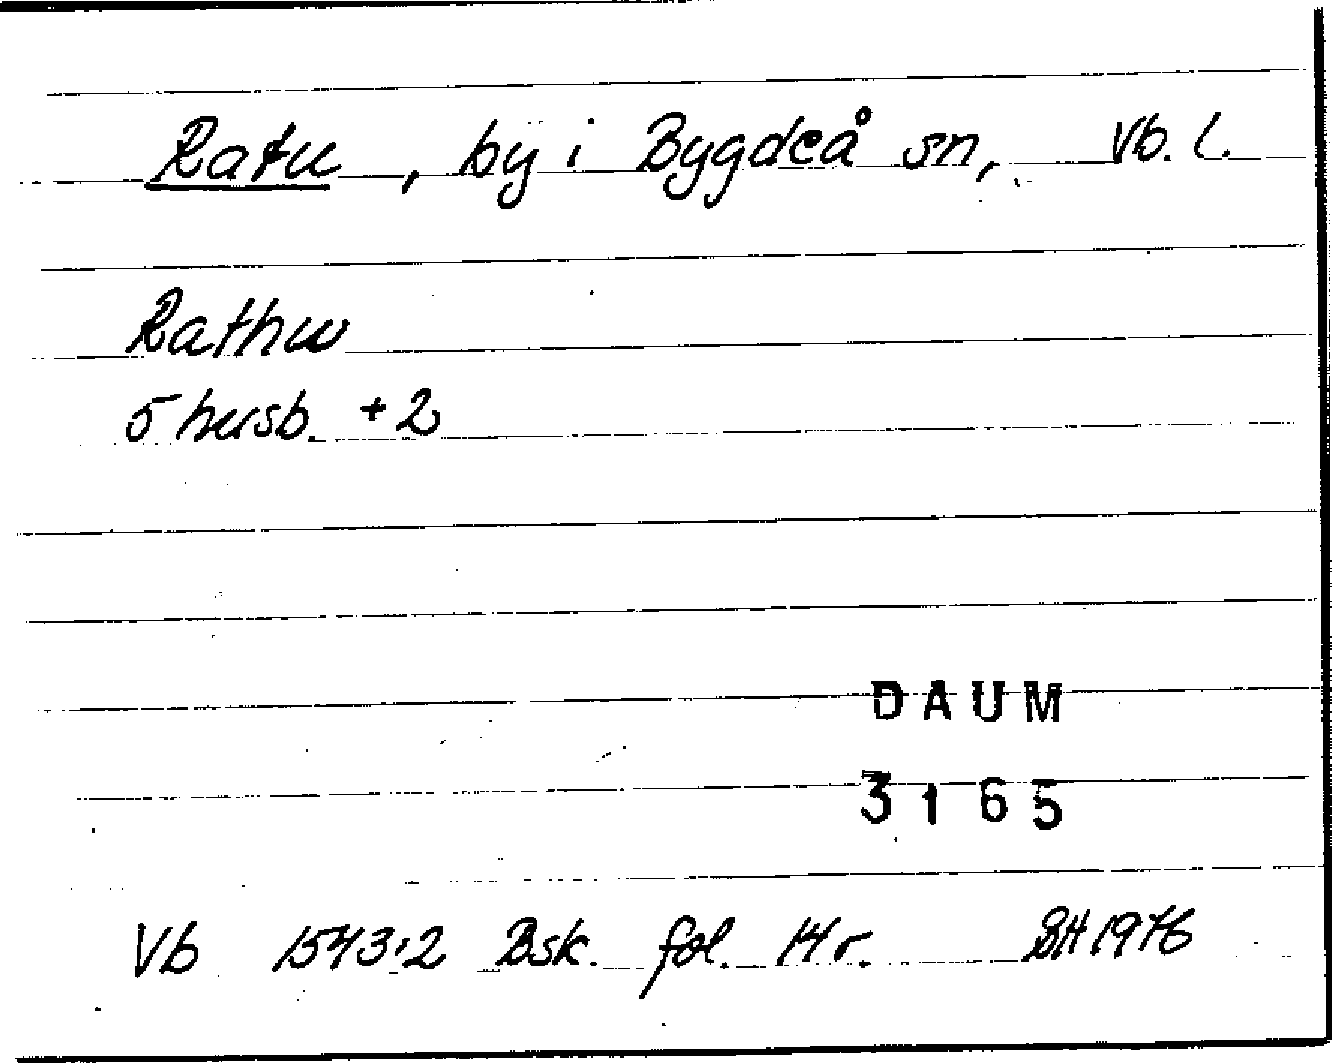 Ratu, by i Bygdeå sn, Vb. l.
Rathw
5 husb. + 2
DAUM
3165
Vb 1543:2 Bsk. fol. 14 r. BH 1976